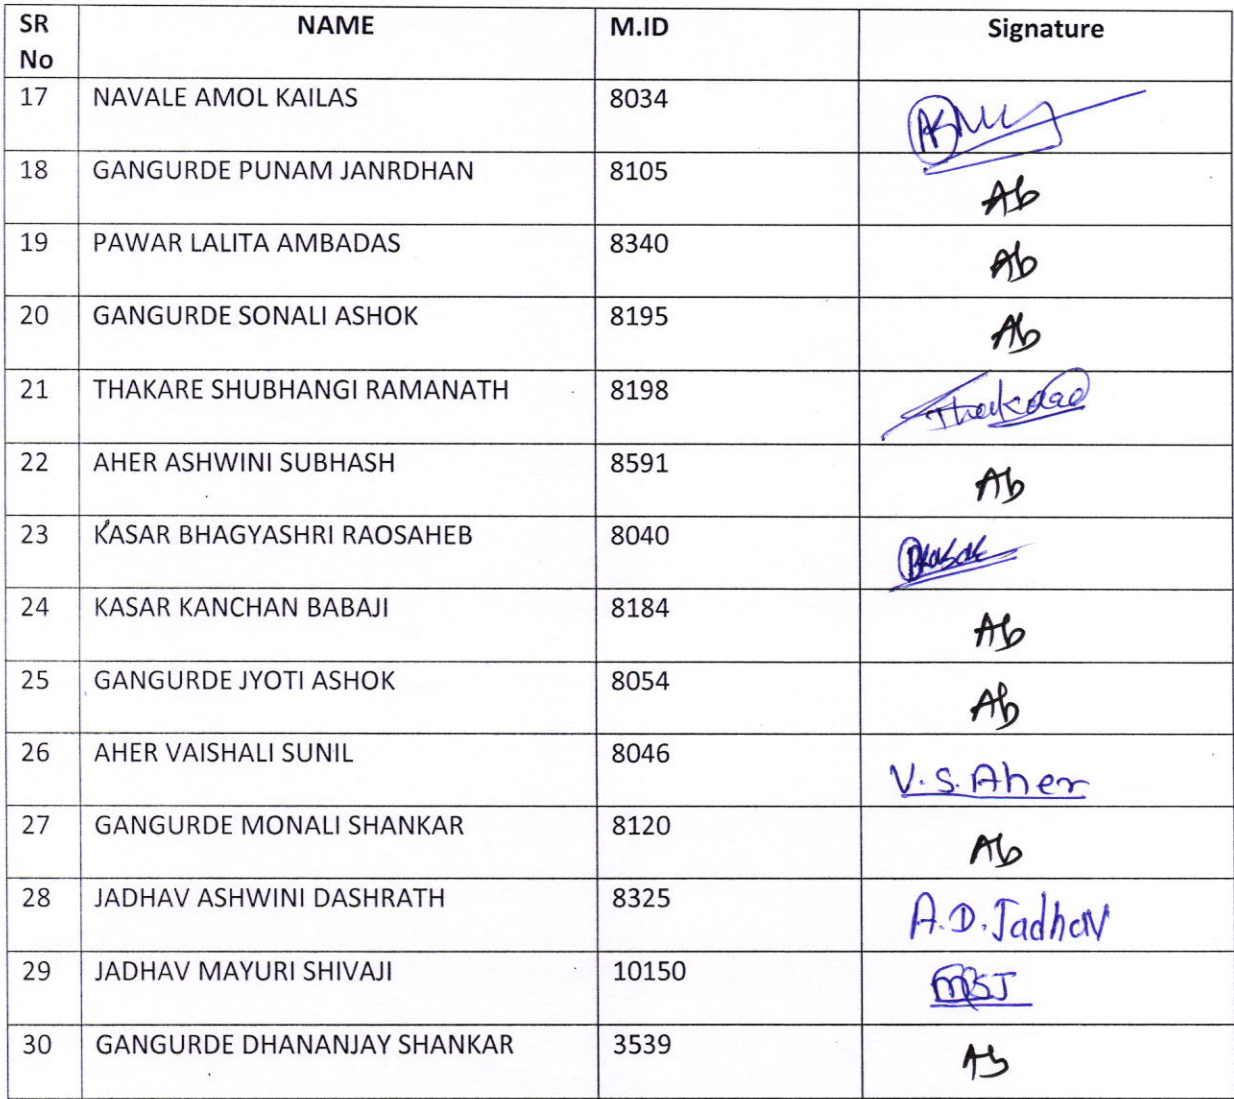 SR No NAME M.ID Signature
17 NAVALE AMOL KAILAS 8034
18 GANGURDE PUNAM JANRDHAN 8105 Ab
19 PAWAR LALITA AMBADAS 8340 Ab
20 GANGURDE SONALI ASHOK 8195 Ab
21 THAKARE SHUBHANGI RAMANATH 8198
22 AHER ASHWINI SUBHASH 8591 Ab
23 KASAR BHAGYASHRI RAOSAHEB 8040
24 KASAR KANCHAN BABAJI 8184 Ab
25 GANGURDE JYOTI ASHOK 8054 Ab
26 AHER VAISHALI SUNIL 8046 V.S.Aher
27 GANGURDE MONALI SHANKAR 8120 Ab
28 JADHAV ASHWINI DASHRATH 8325 A.D.Jadhav
29 JADHAV MAYURI SHIVAJI 10150 MSJ
30 GANGURDE DHANANJAY SHANKAR 3539 Ab